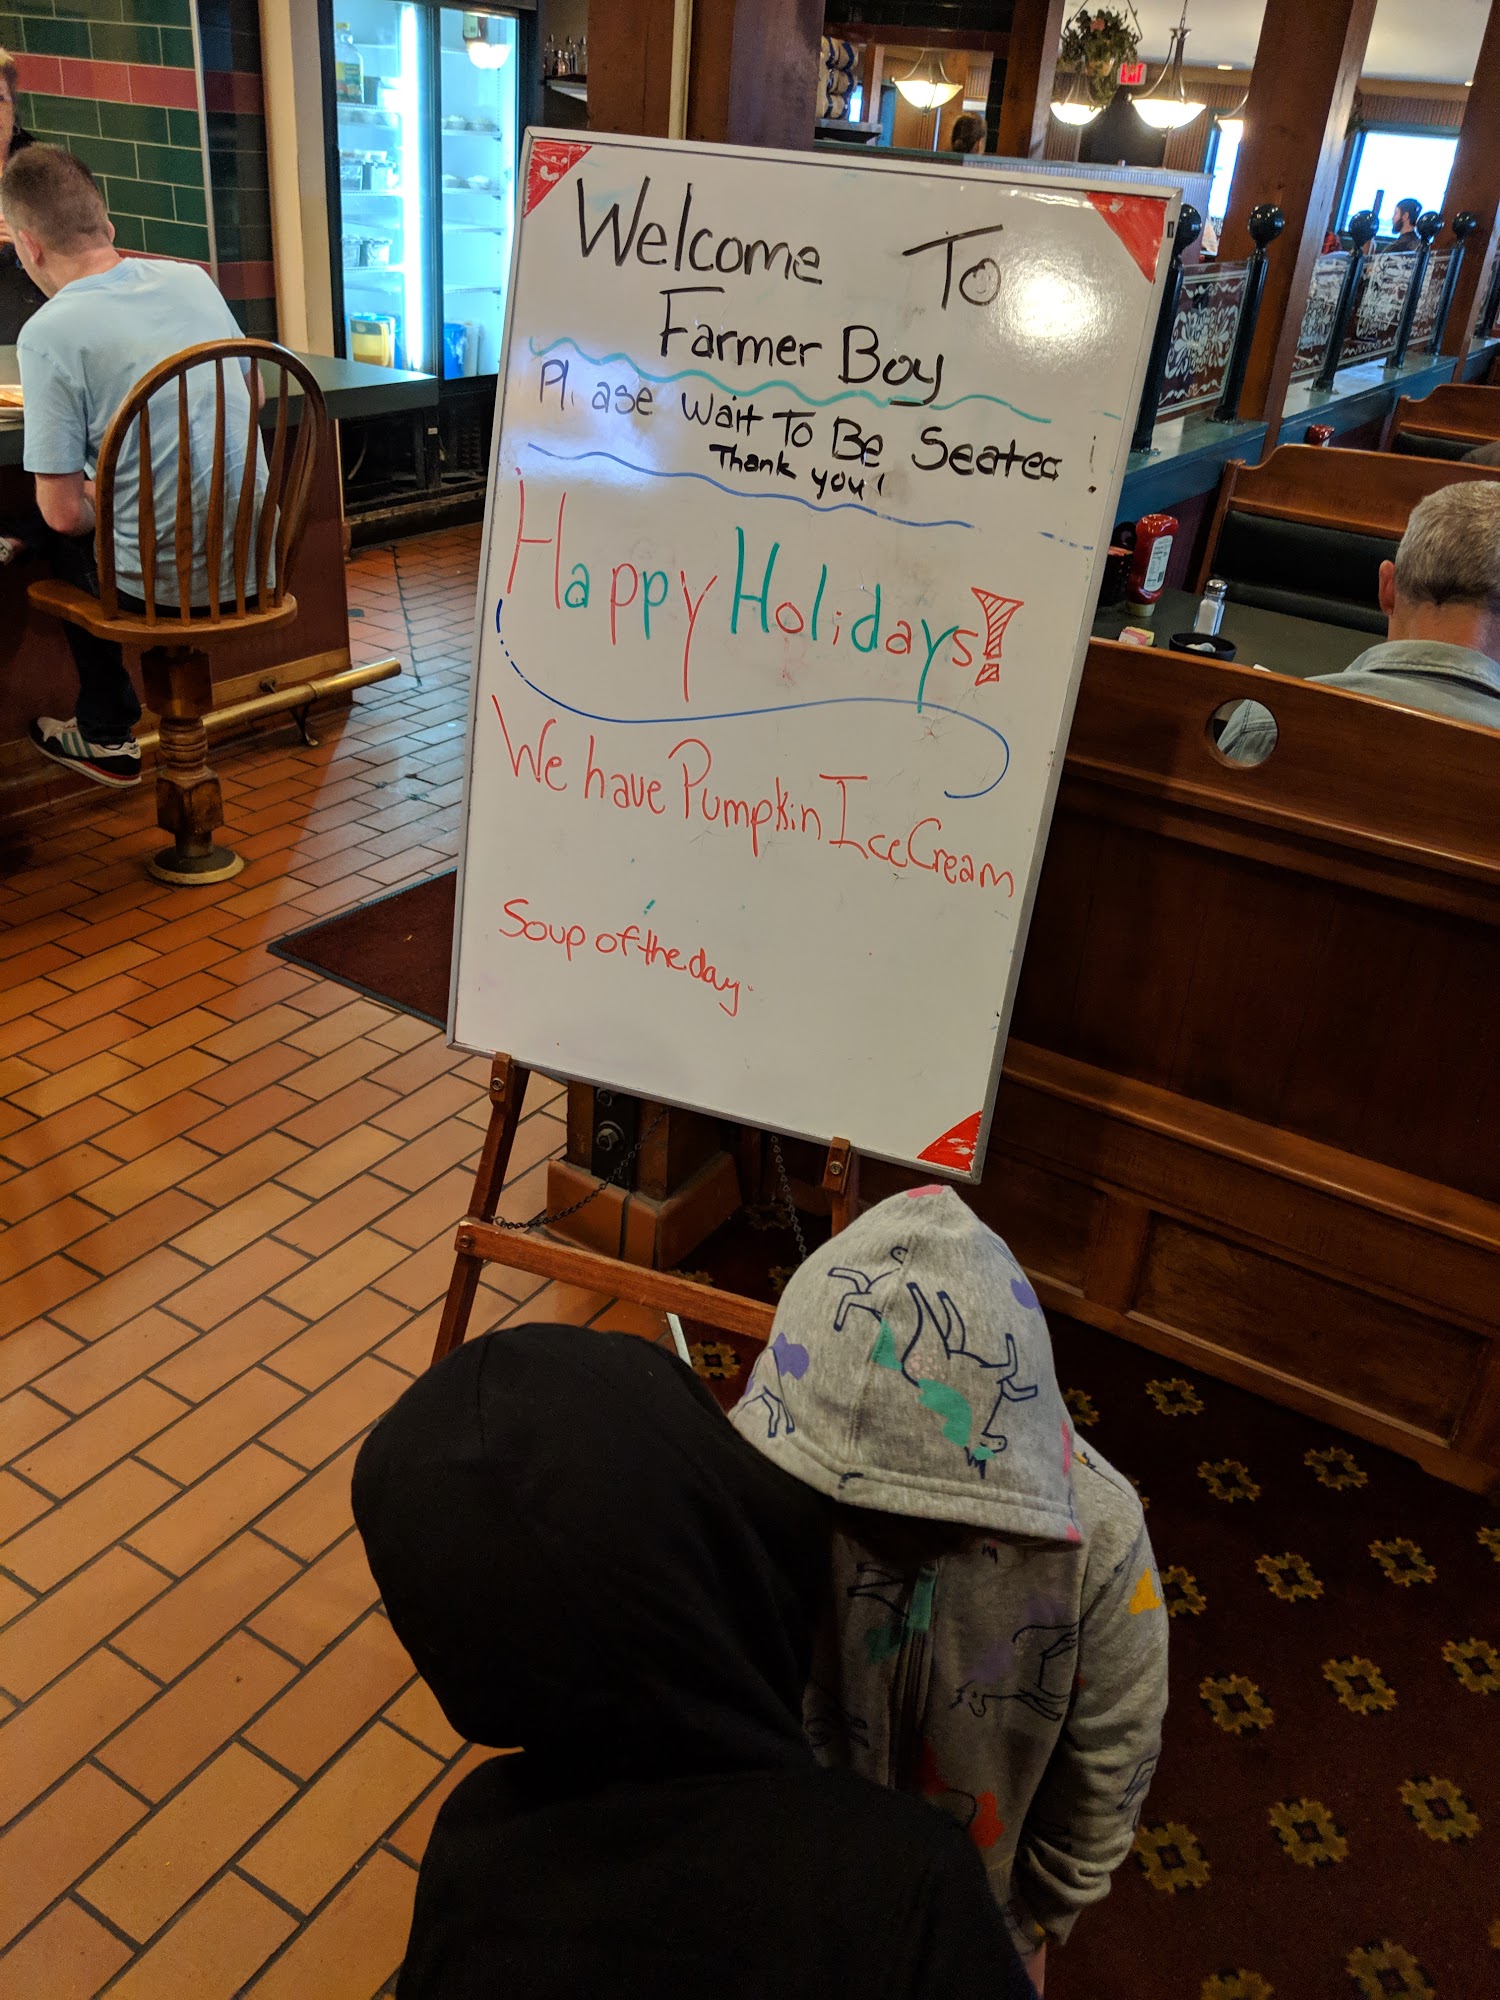 Welcome To
Farmer Boy
Please Wait To Be Seated!
Thank you!
Happy Holidays!
We have Pumpkin Ice Cream
Soup of the day.
EXIT